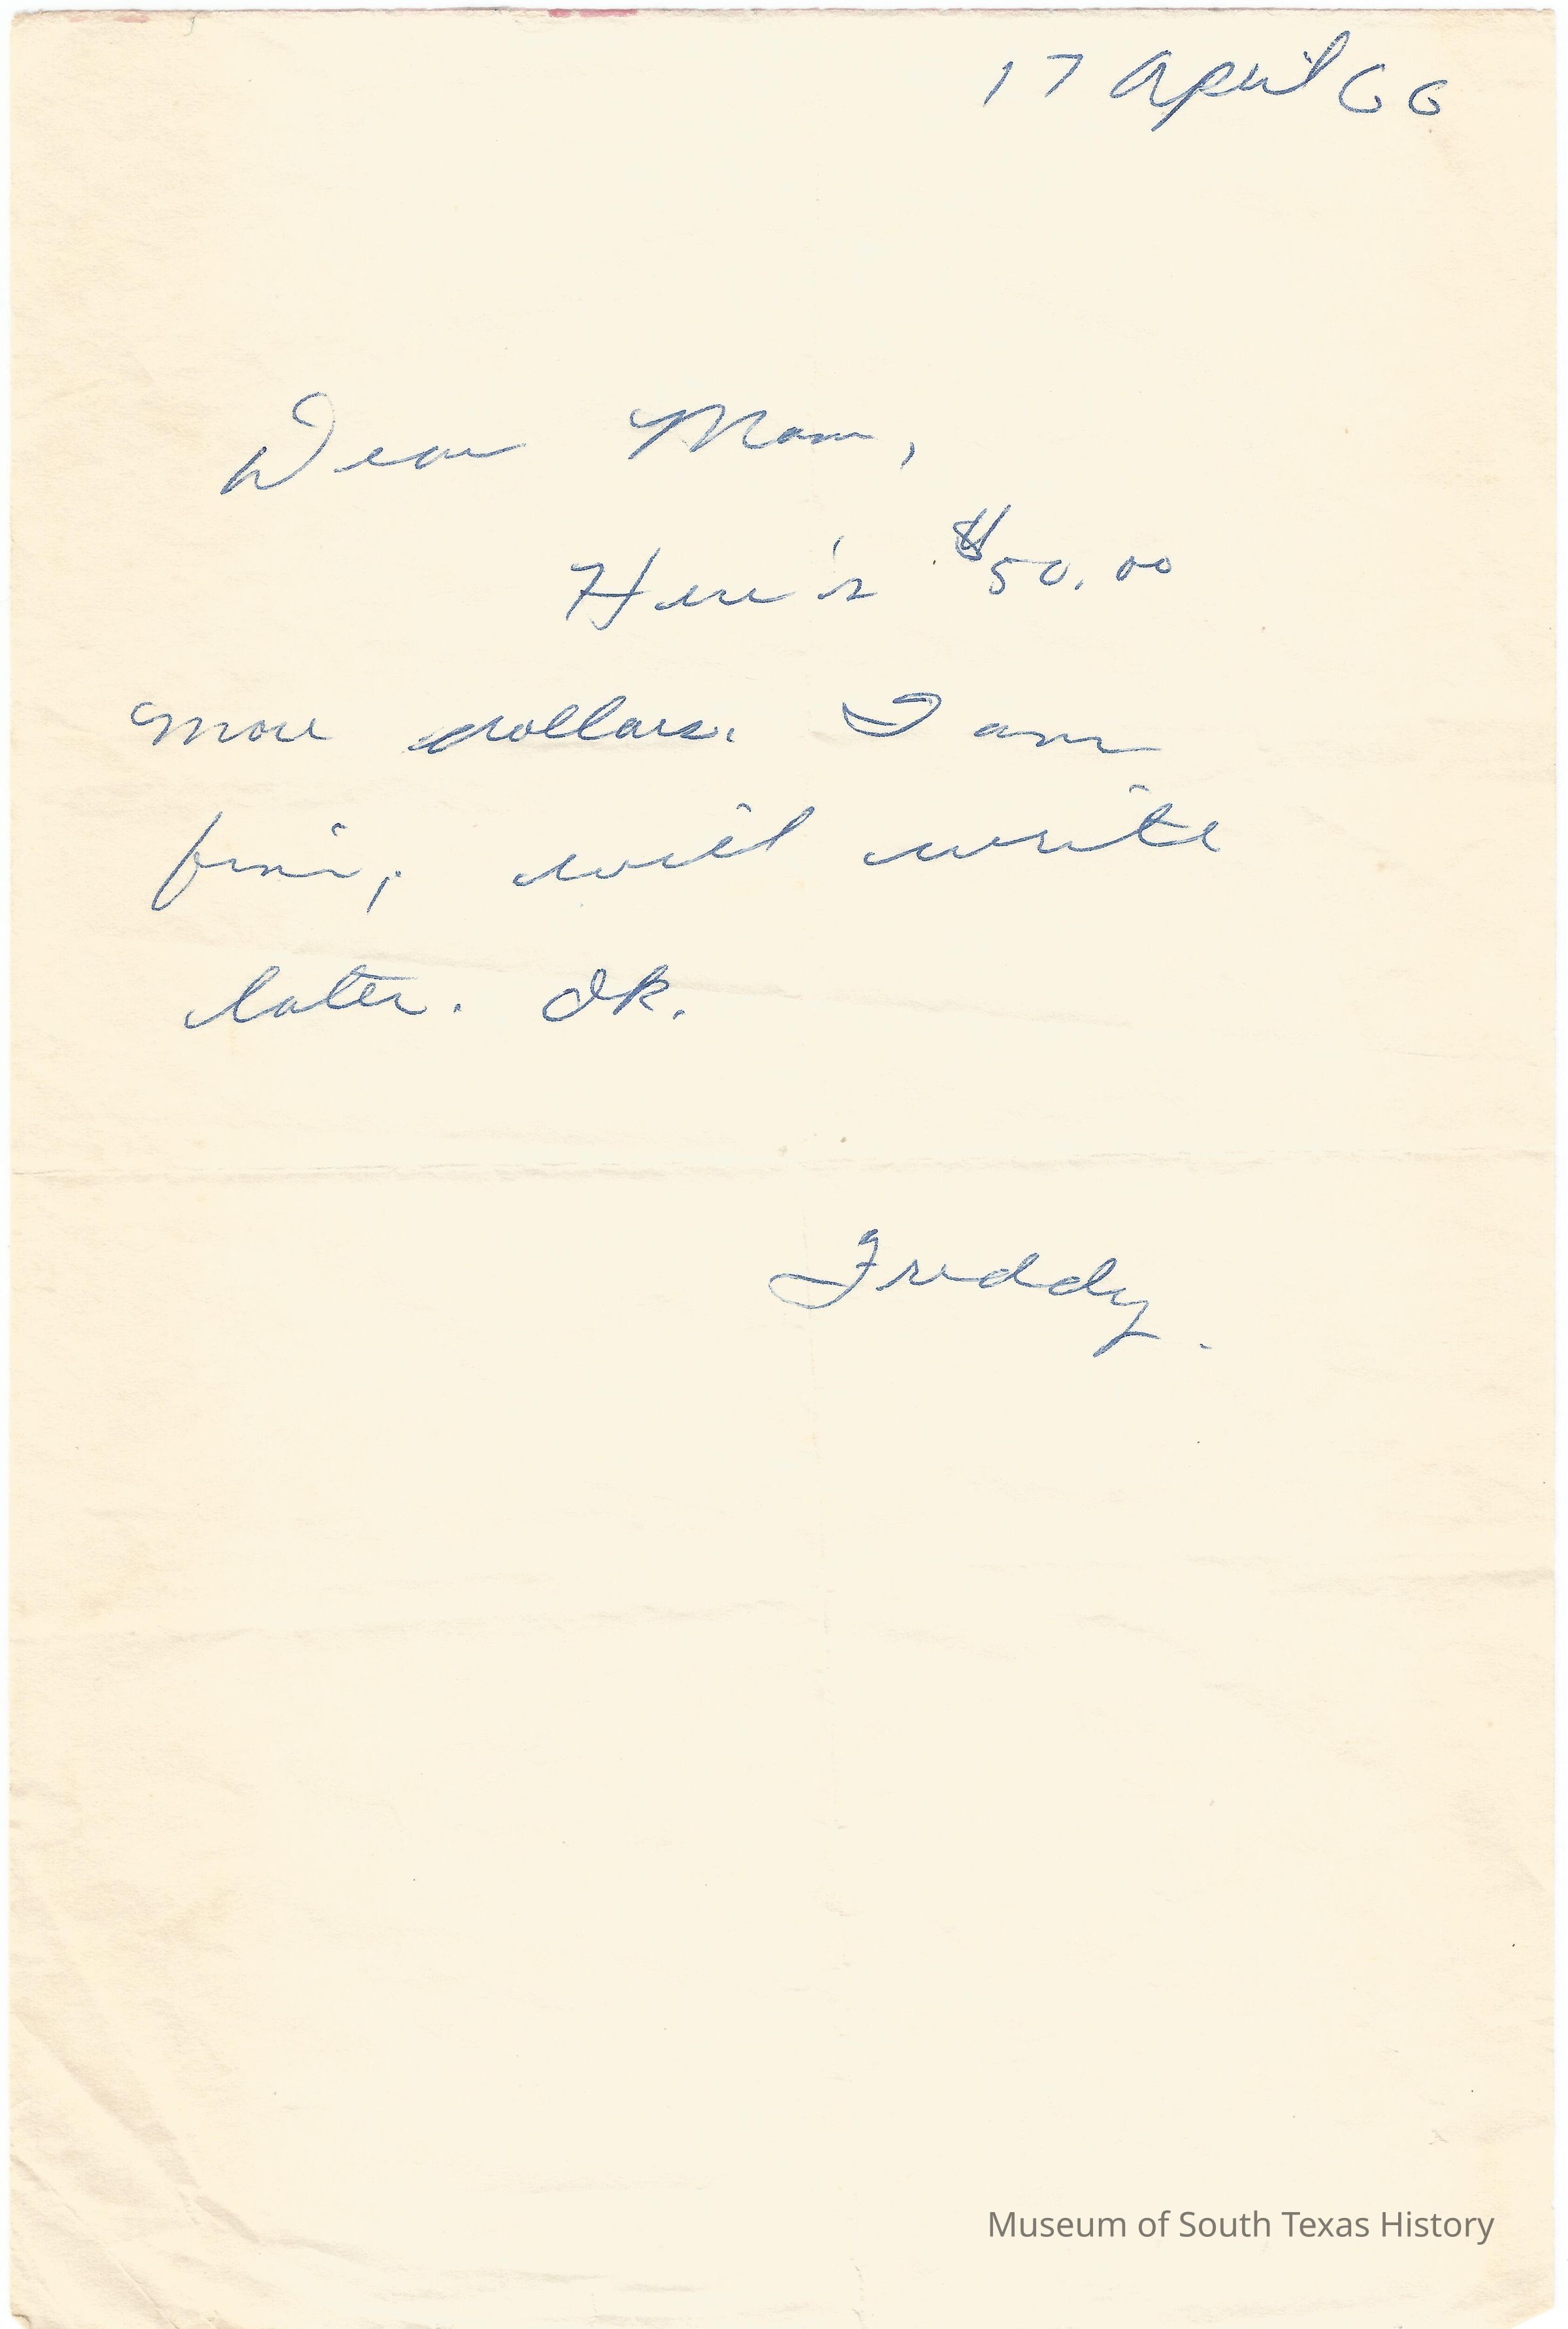 17 April 66
Dear Mom,
Here's $50.00
more dollars. I am
fine, will write
later. Ok.
Freddy.
Museum of South Texas History